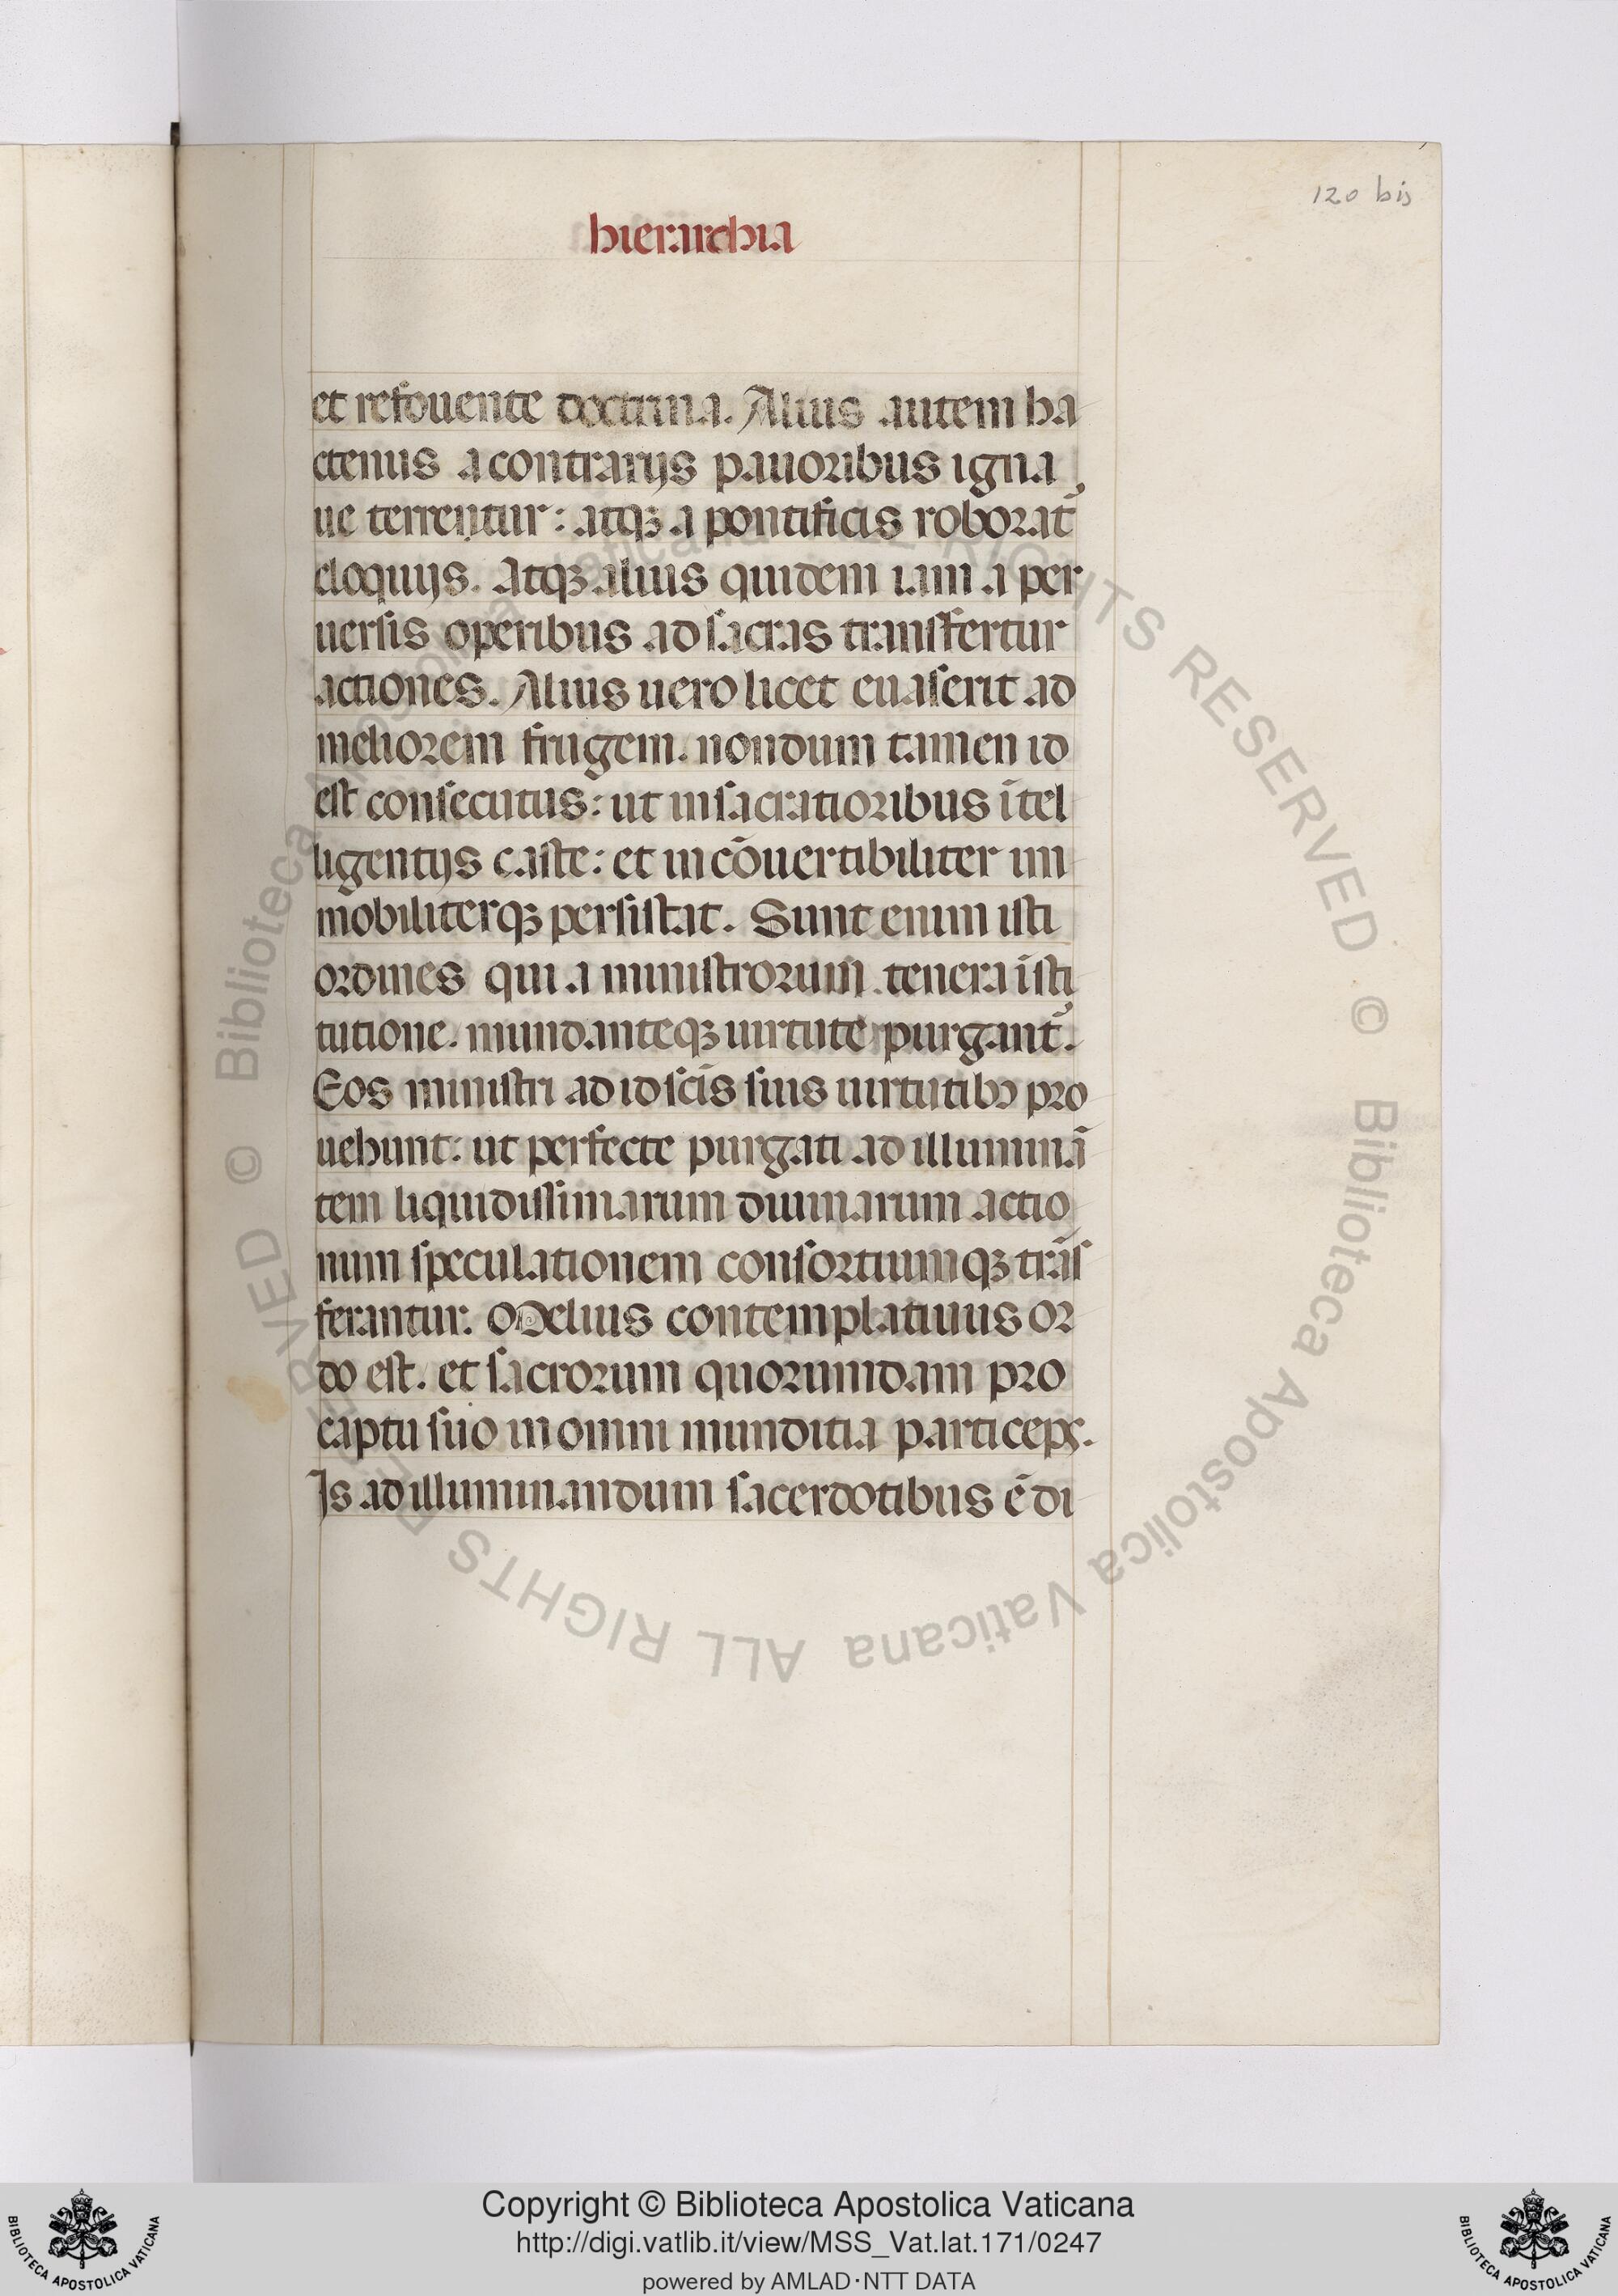 120 bis
hierarchia
et refouente doctrina. Alius autem ha
ctenus a contrarijs pauoribus igna
ue terrentur: atqꝫ a pontificis roborat᷒
eloquijs. Atqꝫ alius quidem iam a per
uersis operibus ad sacras transfertur
actiones. Alius uero licet euaserit ad
meliorem frugem. nondum tamen id
est consecutus: ut in sacratioribus ītel
ligentijs caste: et in cōuertibiliter im
mobiliterqꝫ persistat. Sunt enim isti
ordines qui a ministrorum tenera īsti
tutione. mundanteqꝫ uirtute purgant᷒.
Eos ministri ad id sc̄is suis uirtutibꝫ pro
uehunt: ut perfecte purgati ad illuminā
tem liquidissimarum diuinarum actio
num speculationem consortiumqꝫ trās
ferantur. Melius contemplatiuus or
do est. et sacrorum quorumdam pro
captu suo in omni munditia particeps.
Is ad illuminandum sacerdotibus ē di
© Biblioteca Apostolica Vaticana ALL RIGHTS RESERVED
© Biblioteca Apostolica Vaticana ALL RIGHTS RESERVED
Copyright © Biblioteca Apostolica Vaticana
http://digi.vatlib.it/view/MSS_Vat.lat.171/0247
powered by AMLAD·NTT DATA
BIBLIOTECA APOSTOLICA VATICANA
BIBLIOTECA APOSTOLICA VATICANA